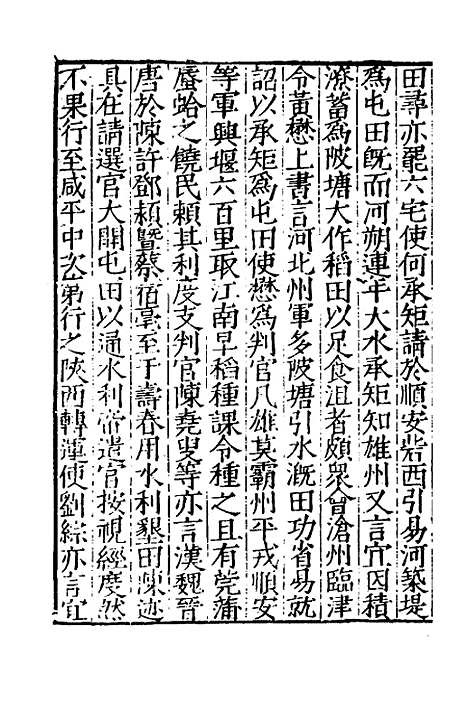 田尋亦罷六宅使何承矩請於順安砦西引易河築堤
爲屯田既而河朔連年大水承矩知雄州又言宜因積
潦蓄爲陂塘大作稻田以足食沮者頗衆會滄州臨津
令黃懋上書言河北州軍多陂塘引水溉田功省易就
詔以承矩爲屯田使懋爲判官凡雄莫霸州平戎順安
等軍興堰六百里取江南早稻種課令種之且有莞蒲
蜃蛤之饒民賴其利度支判官陳堯叟等亦言漢魏晉
唐於陳許鄧頼暨蔡宿亳至于壽春用水利墾田陳迹
具在請選官大開屯田以通水利帝遣官按視經度然
不果行至咸平中次苐行之陜西轉運使劉綜亦言宜